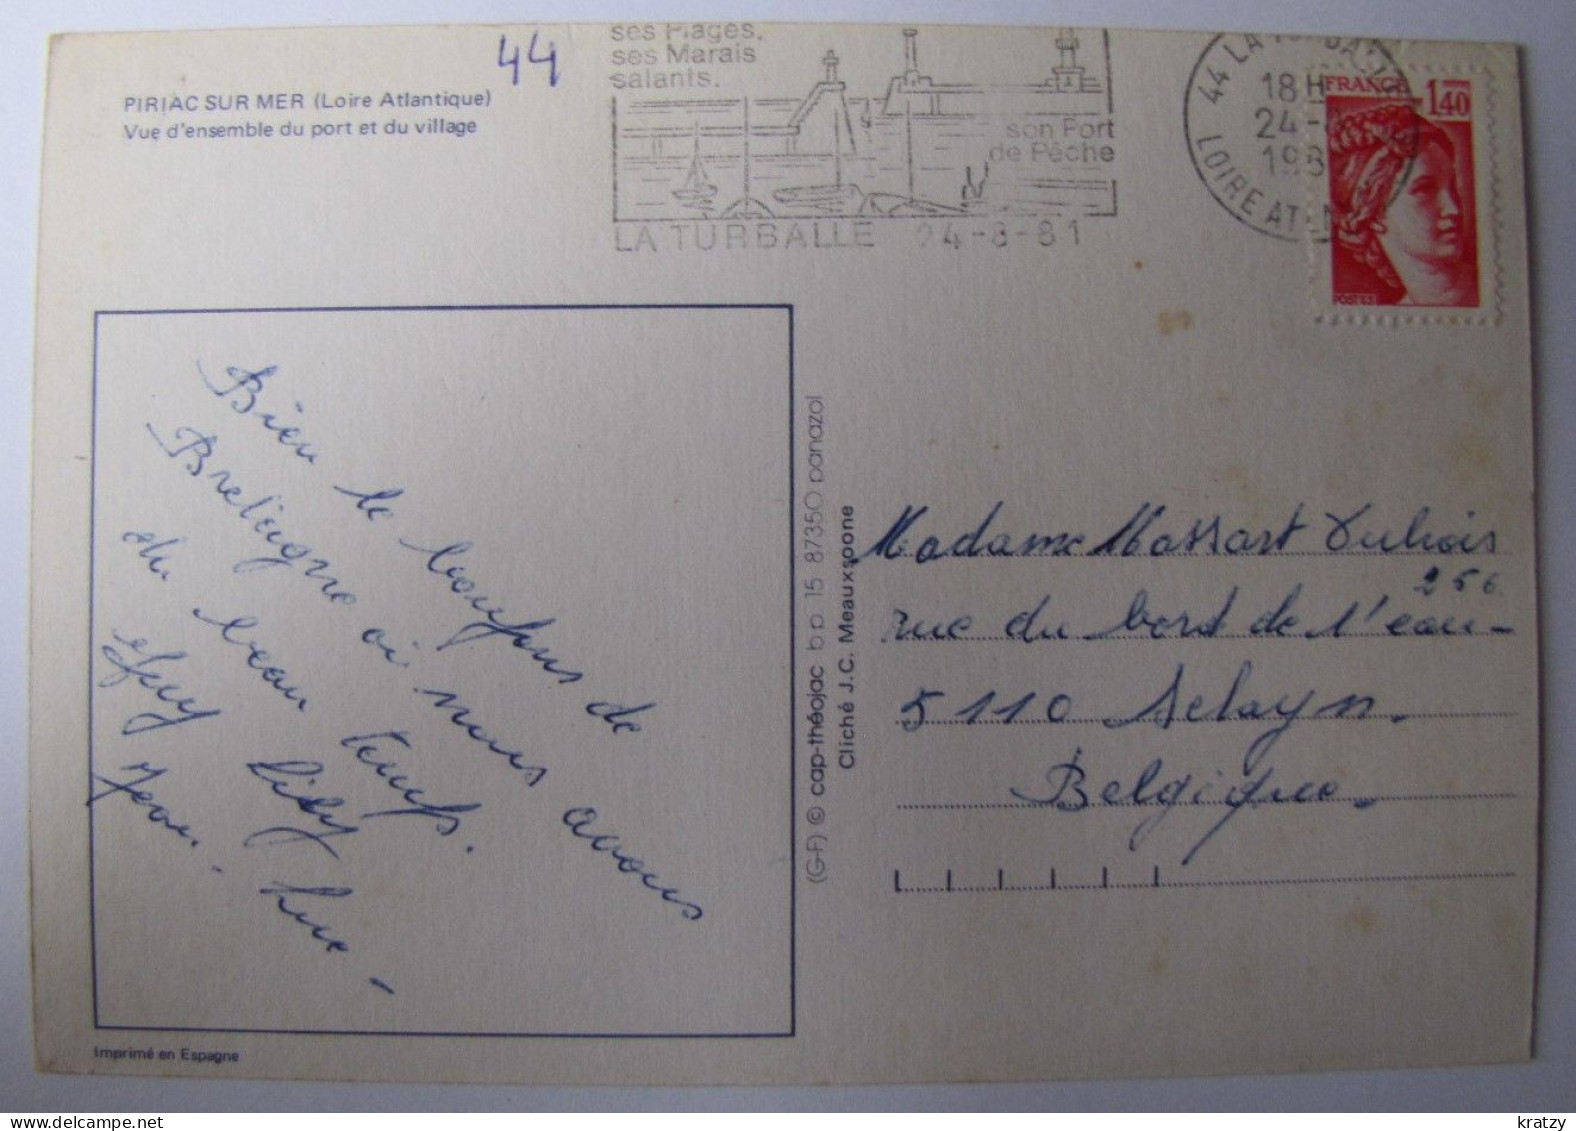 44
PIRIAC SUR MER (Loire Atlantique)
Vue d'ensemble du port et du village
ses Plages,
ses Marais
salants.
son Port
de Pêche
LA TURBALLE 24-8-81
44 LA TURBALLE
18H
24-
198
LOIRE ATLAN
FRANCE
1,40
POSTES
Bien le bonjour de
Bretagne où nous avons
du beau temps.
Guy Lily Luc -
Jean.
(G-F) © cap-théojac b p 15 87350 panazol
Cliché J.C. Meauxsoone
Madame Massart Dubois
256
rue du bord de l'eau -
5110 Sclayn.
Belgique.
Imprimé en Espagne
www.delcampe.net
kratzy